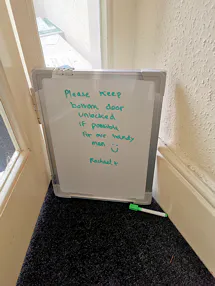 Please Keep
bottom door
unlocked
if possible
for our handy
man
Rachael